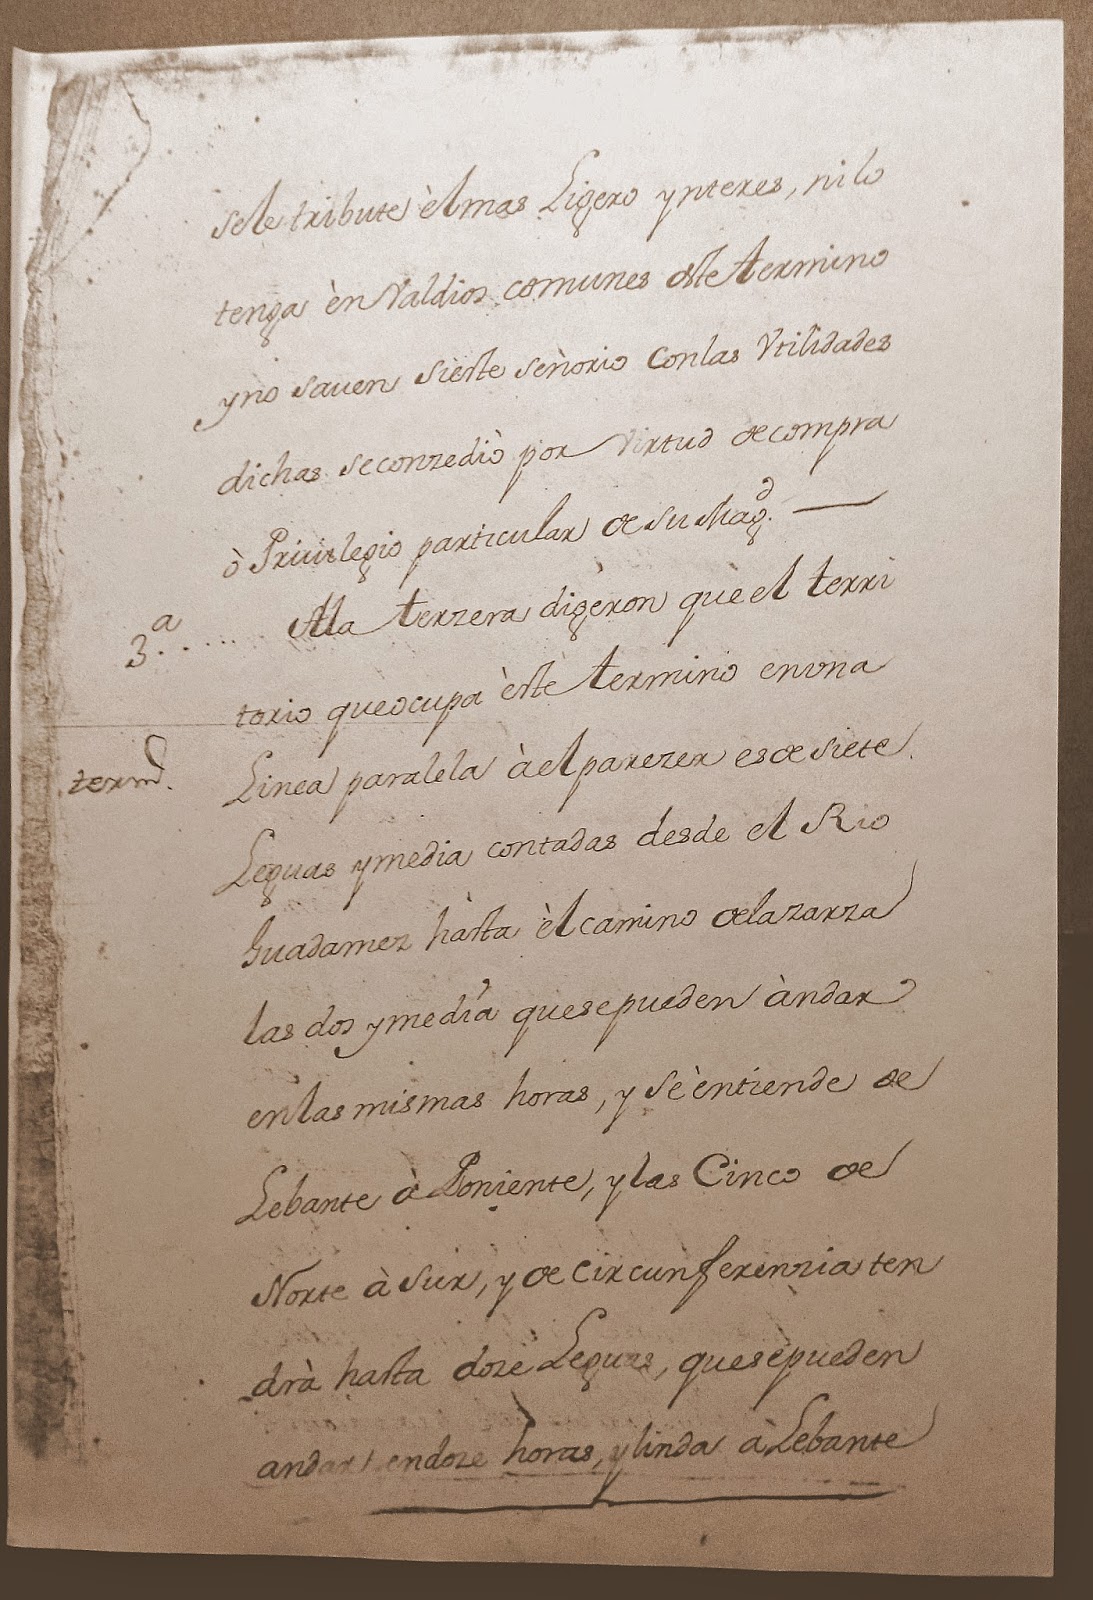 sele tribute èl mas Ligero ynteres, ni lo
tenga èn Valdios comunes deste termino
y no saven si este señorio con las Vtilidades
dichas se conzediò por Virtud de compra
ò Priuilegio particular de su Mag.d
3.a ..... A la terzera digeron què el terri
torio que ocupa èste termino en vna
term.o Linea paralela à el parezer es de siete
Leguas y media contadas desde el Rio
Guadamez hàsta èl camino de la zarza
las dos y media que se pueden àndar
en las mismas horas, y se èntiende de
Lebante à Poniente, y las Cinco de
Norte à Sur, y de circunferenzia ten
drà hasta doze Leguas, que se pueden
andar en doze horas, y linda à Lebante